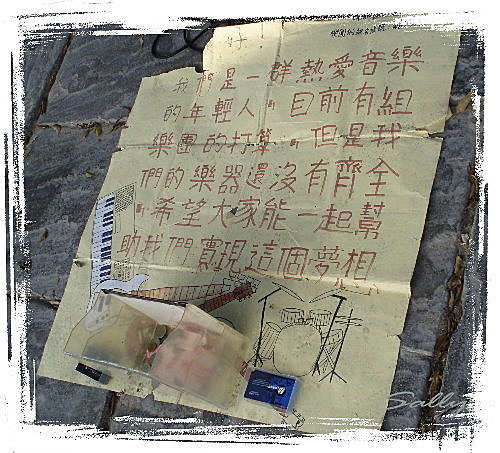 好!
我們是一群熱愛音樂
的年輕人，目前有組
樂團的打算，但是我
們的樂器還沒有齊全
，希望大家能一起幫
助我們實現這個夢想